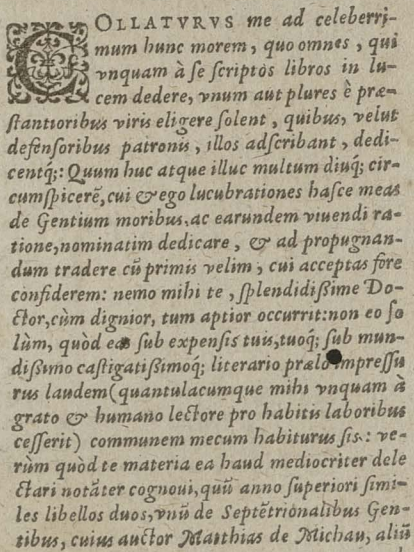 COLLATVRVS me ad celeberri-
mum hunc morem, quo omnes, qui
vnquam à ſe ſcriptos libros in lu-
cem dedere, vnum aut plures è præ-
ſtantioribus viris eligere ſolent, quibus, velut
defenſoribus patronis, illos adſcribant, dedi-
centq́;: Quum huc atque illuc multum diuq́; cir-
cumſpicerē, cui & ego lucubrationes haſce meas
de Gentium moribus, ac earundem viuendi ra-
tione, nominatim dedicare, & ad propugnan-
dum tradere cū primis velim, cui acceptas fore
confiderem: nemo mihi te, ſplendidißime Do-
ctor, cùm dignior, tum aptior occurrit: non eo ſo
lùm, quòd eas ſub expenſis tuis, tuoq́; ſub mun-
dißimo caſtigatißimoq́; literario prælo impreſſu
rus laudem (quantulacumque mihi vnquam à
grato & humano lectore pro habitis laboribus
ceſſerit) communem mecum habiturus ſis: ve-
rùm quòd te materia ea haud mediocriter dele
ctari notāter cognoui, quū anno ſuperiori ſimi-
les libellos duos, vnū de Septētrionalibus Gen-
tibus, cuius auctor Matthias de Michau, aliū